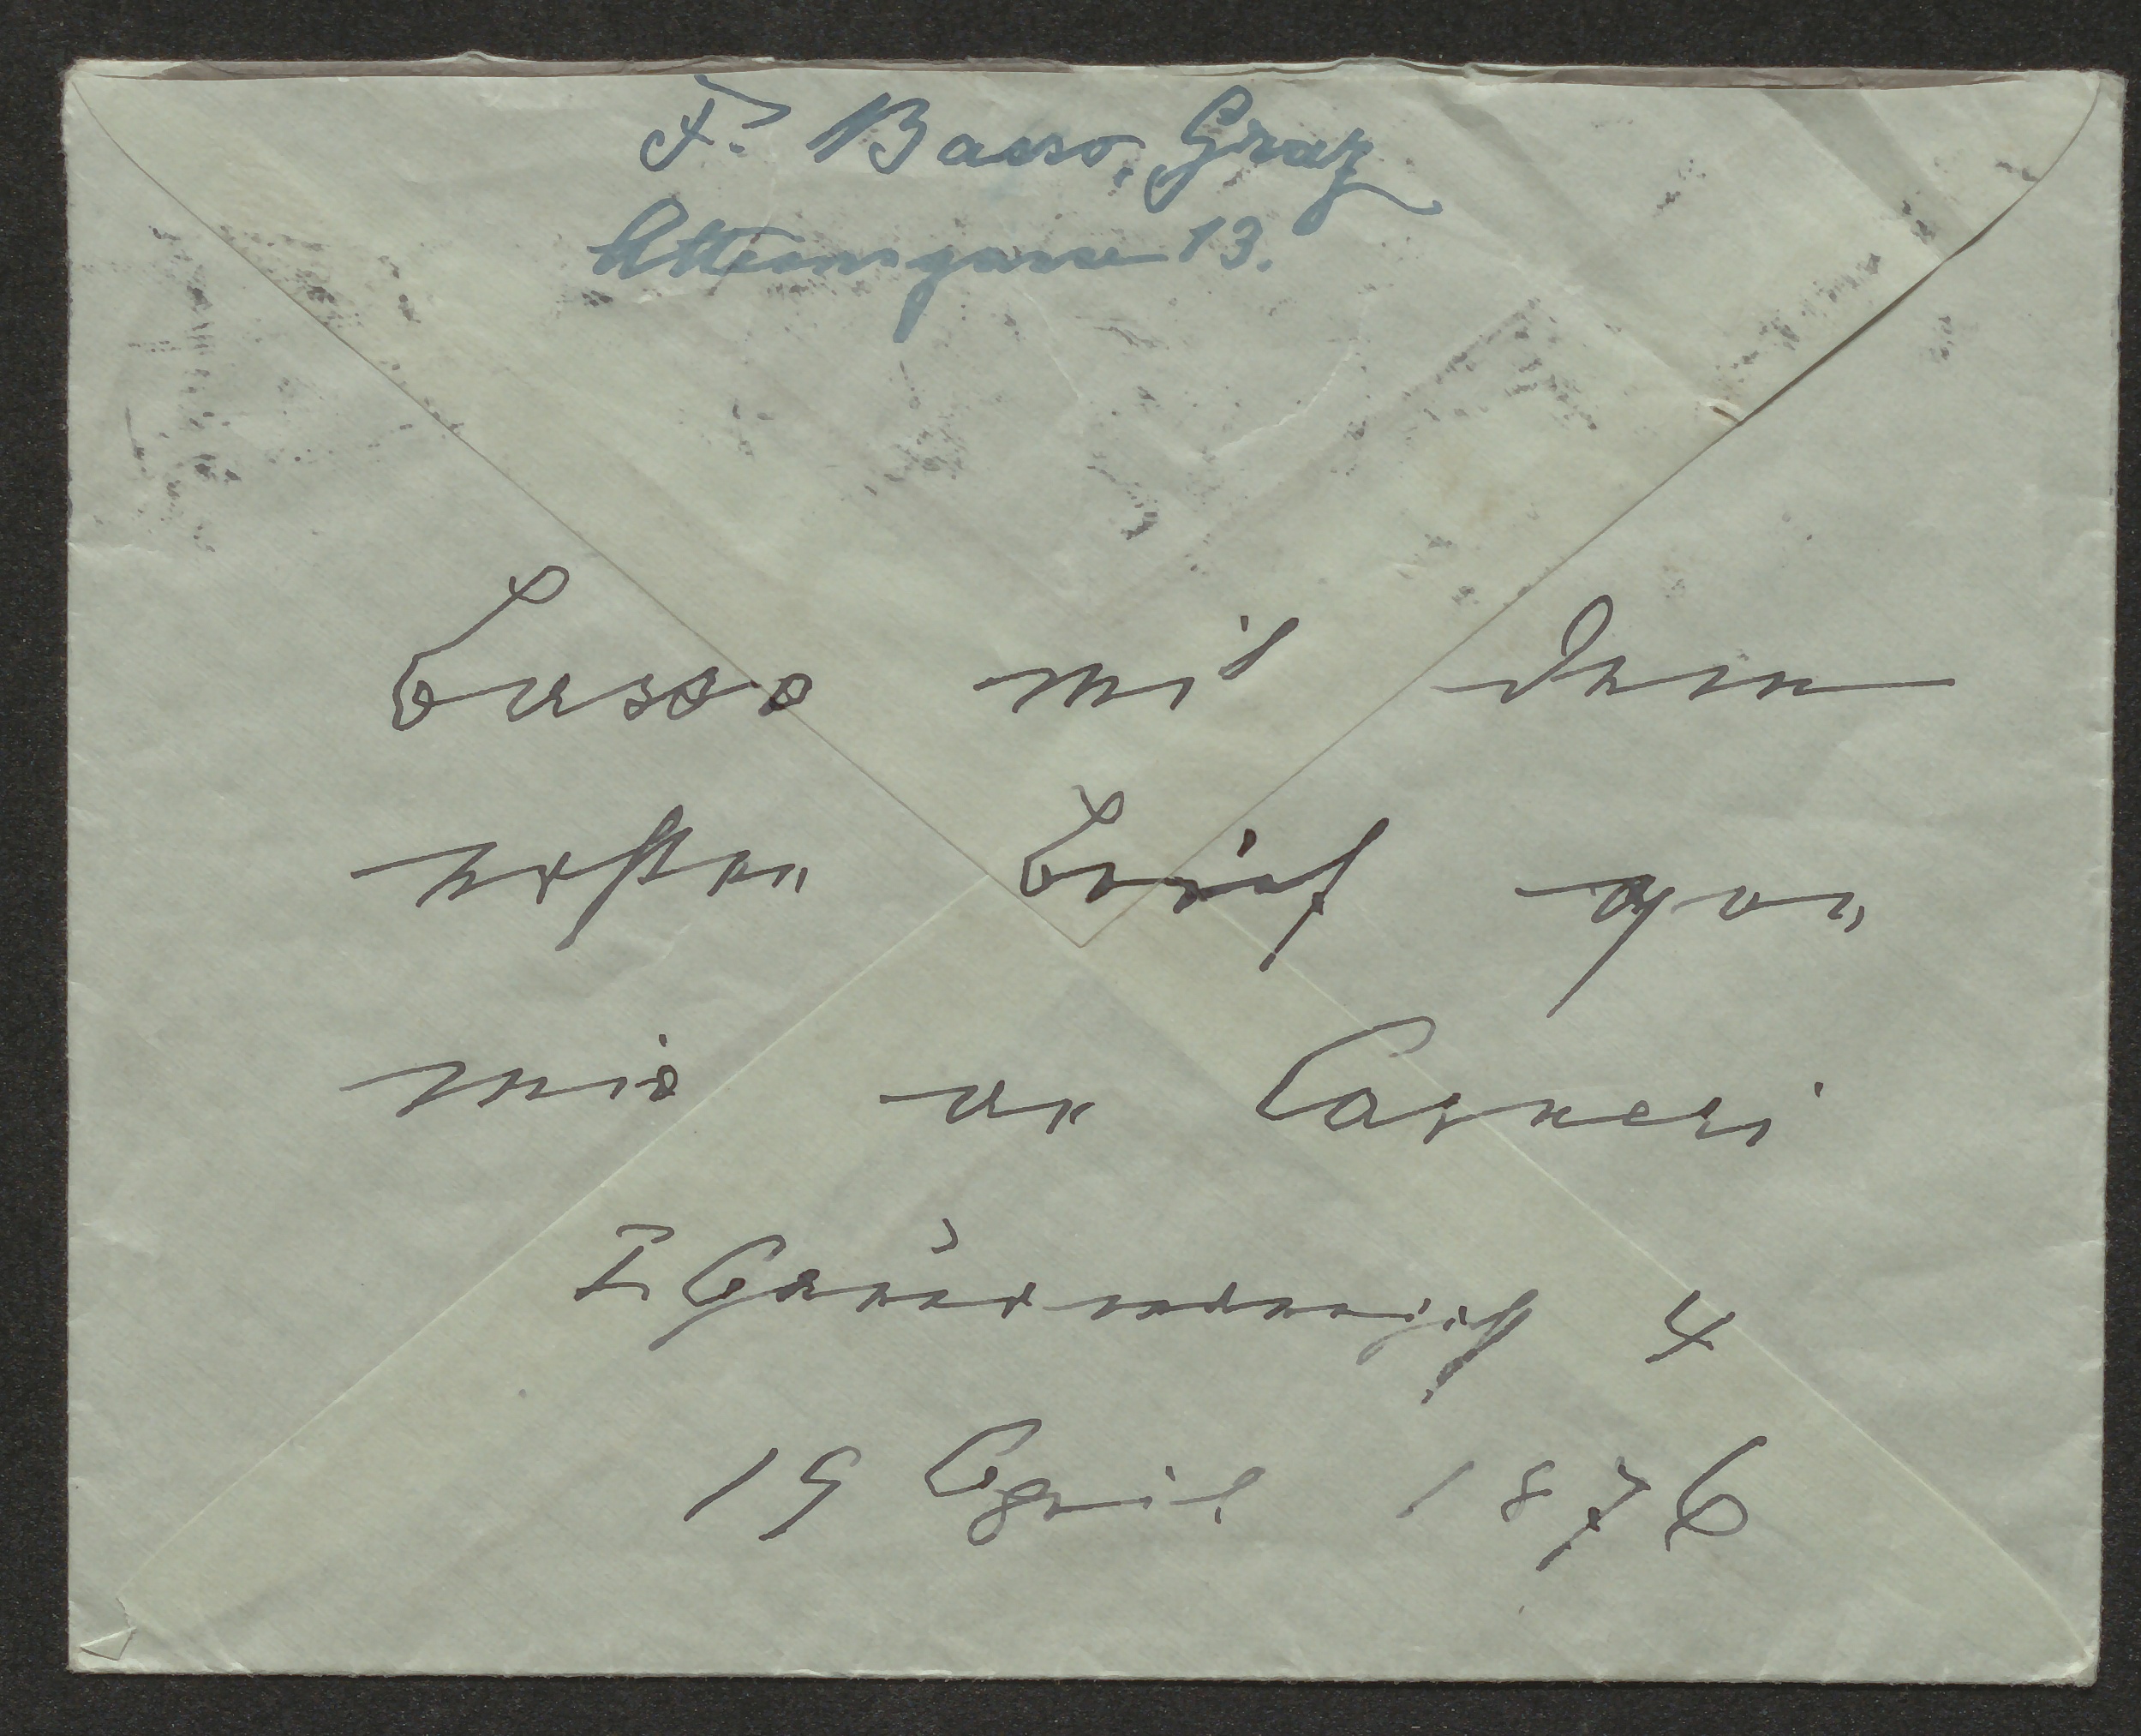 F. Basso, Graz
Attemsgasse 13.
Basso mit dem
ersten Brief von
mir an Carneri
19 April 1876